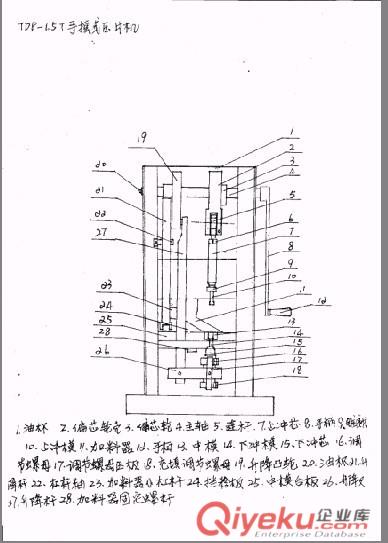 TDP-1.5T手摇式压片机
19
1
2
3
4
5
6
7
8
9
10
11
12
13
14
15
16
17
18
20
21
22
27
23
24
25
28
26
1.油杯 2.偏芯轮壳 3.偏芯轮 4.主轴 5.连杆 7.上冲芯 8.手柄 9.
10.上冲模 11.加料器 12.手柄 13.中模 14.下冲模 15.下冲芯 16.调
节螺母 17.调节螺母压板 18.充填调节螺母 19.升降凸轮 20.油杯 21.升
降杆 22.杠杆轴 23.加料器 杠杆 24. 板 25.中模台板 26.升降叉
27.升降杆 28.加料器固定螺杆
Qiyeku.com 企业库
Enterprise Database